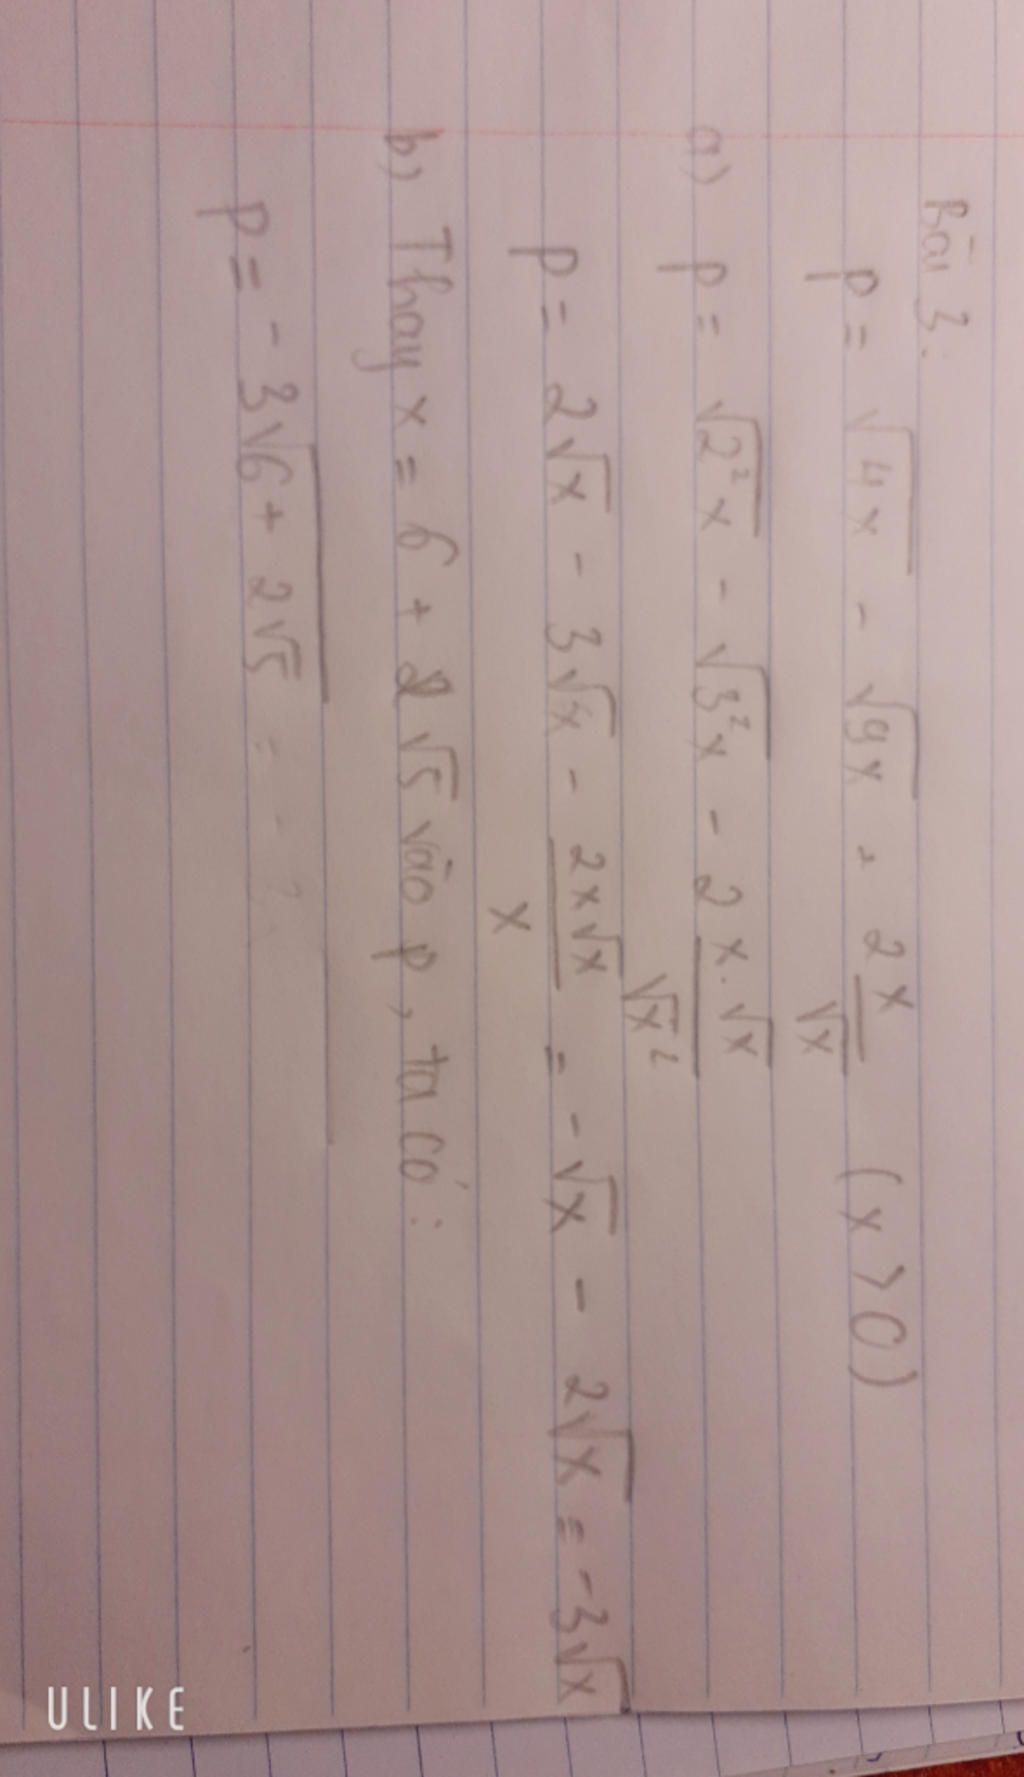 Bài 3:
P = √4x - √9x - 2x/√x (x > 0)
a) P = √2²x - √3²x - 2x.√x/√x²
P = 2√x - 3√x - 2x√x/x = -√x - 2√x = -3√x
b) Thay x = 6 + 2√5 vào P, ta có:
P = -3√6 + 2√5 = -
ULIKE